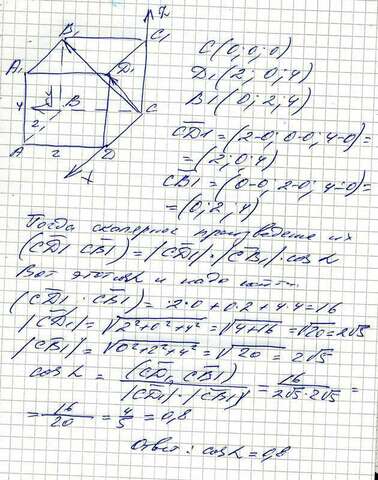 z
B₁ C₁
A₁ D₁
C(0; 0; 0)
D₁(2; 0; 4)
B₁(0; 2; 4)
4 2 B C
A 2 D
x
CD1 = (2-0; 0-0; 4-0) =
= (2; 0; 4)
CB₁ = (0-0; 2-0; 4-0) =
= (0; 2; 4)
Тогда скалярное произведение их
(CD₁ CB₁) = |CD₁| · |CB₁| · cos α
Вот этот и надо найти.
(CD₁ · CB₁) = 2·0 + 0·2 + 4·4 = 16
|CD₁| = √2²+0²+4² = √4+16 = √20 = 2√5
|CB₁| = √0²+2²+4² = √20 = 2√5
cos α = (CD₁ CB₁) / |CD₁| · |CB₁| = 16 / 2√5·2√5 =
= 16/20 = 4/5 = 0,8
Ответ: cos α = 0,8